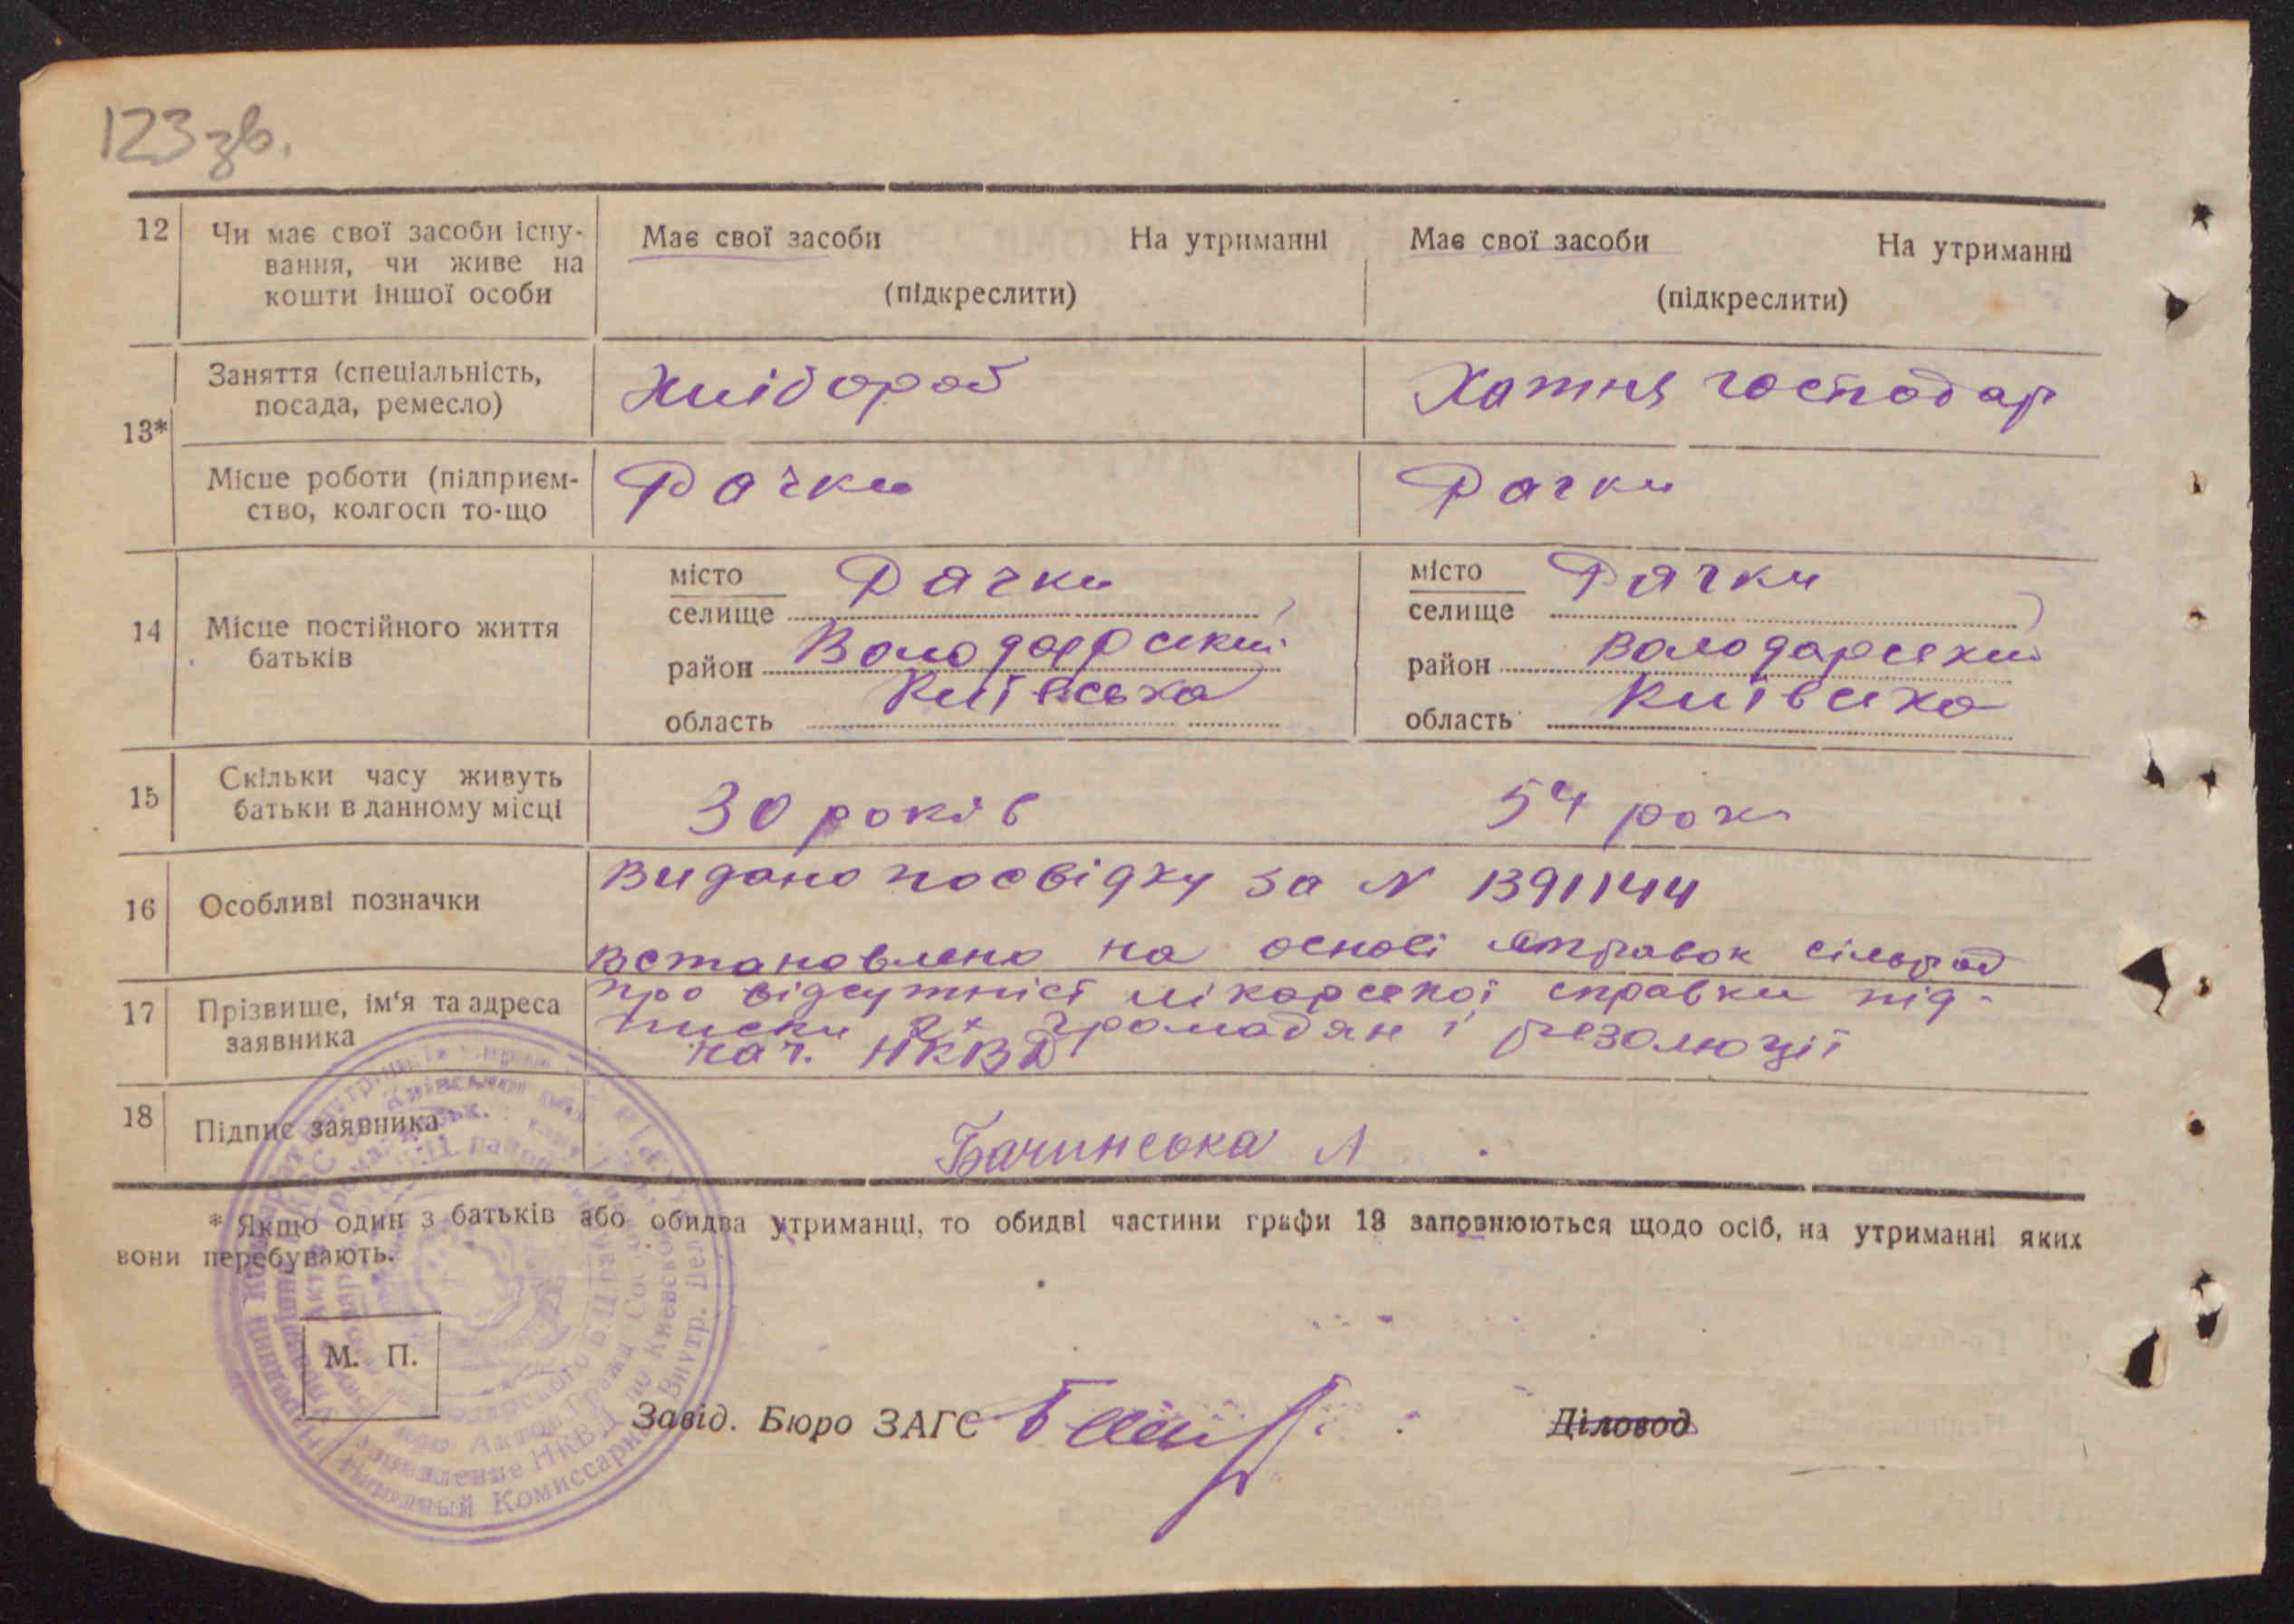 123 зв.
12 Чи має свої засоби існу-
вання, чи живе на
кошти іншої особи
Має свої засоби На утриманні
(підкреслити)
Має свої засоби На утриманні
(підкреслити)
13*
Заняття (спеціальність,
посада, ремесло)
Хлібороб
Хатня господар
Місце роботи (підприєм-
ство, колгосп то-що
Рачки
Рачки
14 Місце постійного життя
батьків
місто
селище Рачки
район Володарський
область Київська
місто
селище Рачки
район Володарский
область Київська
15 Скільки часу живуть
батьки в данному місці
30 років
54 роки
16 Особливі позначки
Видано посвідку за N 1391144
Встановлено на основі справок сільрад
17 Прізвище, ім'я та адреса
заявника
про відсутніст лікарскої справки під-
писки 2х громадян і резолюції
нач. НКВД
18 Підпис заявника
Бачинська Л
* Якщо один з батьків або обидва утриманці, то обидві частини графи 13 заповнюються щодо осіб, на утриманні яких
вони перебувають.
М. П.
Завід. Бюро ЗАГС
Діловод
Народный Комиссариат Внутр. Дел
Управление НКВД по Киевской